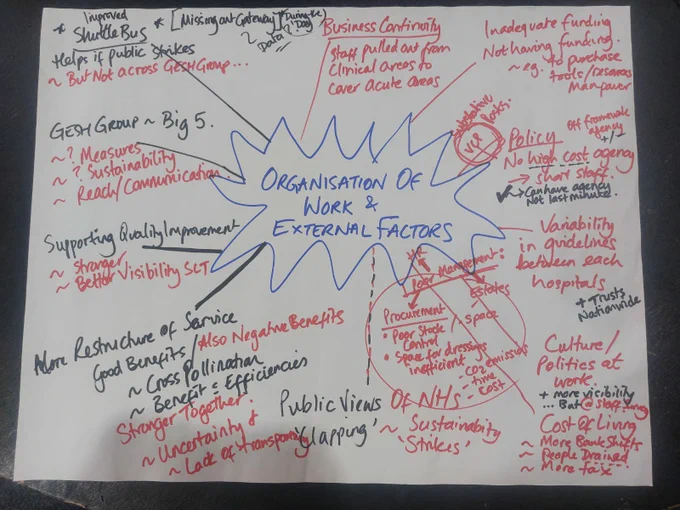 * Improved Shuttle Bus
* [Missing out Gateway] During the Day
~ Data?
Helps if public strikes
~ But Not across GESH Group...
GESH GROUP ~ Big 5.
~ ? Measures
~ ? Sustainability
~ Reach/Communication
Supporting Quality Improvement
~ Stronger
~ Better Visibility SLT
More Restructure of Service
Good Benefits / Also Negative Benefits
~ Cross Pollination
~ Benefit = Efficiencies
Stronger Together?
~ Uncertainty &
~ Lack of transparency
Business Continuity
Staff pulled out from
Clinical areas to
cover acute areas
ORGANISATION OF
WORK &
EXTERNAL FACTORS
Inadequate funding
Not having funding.
~ eg. to purchase
tools/resources
Manpower
Substantive
Posts.
VCP
Off framework
agency
+/-
Policy
No high cost agency
→ short staff.
→ Can have agency
Not last minute.
Variability
in guidelines
between each
hospitals
+ Trusts
Nationwide
Poor Management:
Procurement
• Poor Stock
Control
• Space for dressings
inefficient
Estates
/ - space
- CO2 emissions
- time
- cost
Public Views Of NHS
'Clapping'
~ Sustainability
'Strikes'
Culture/
Politics at
work.
+ more visibility
... But
Cost of Living
~ More Bank Shifts
~ People Drained
~ More